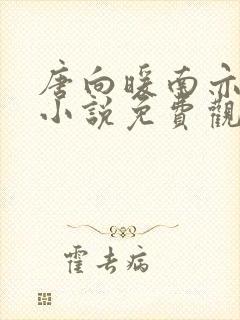 唐向暖南亦
小說免費觀
霍去病